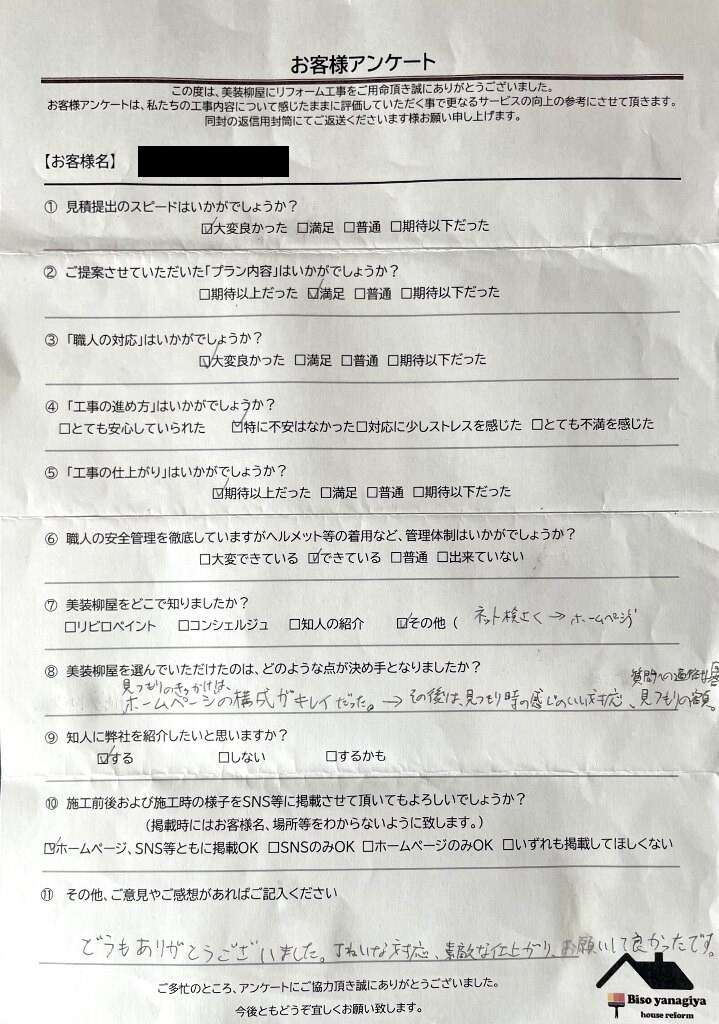 お客様アンケート
この度は、美装柳屋にリフォーム工事をご用命頂き誠にありがとうございました。
お客様アンケートは、私たちの工事内容について感じたままに評価していただく事で更なるサービスの向上の参考にさせて頂きます。
同封の返信用封筒にてご返送くださいます様お願い申し上げます。
【お客様名】
① 見積提出のスピードはいかがでしょうか？
☑大変良かった □満足 □普通 □期待以下だった
② ご提案させていただいた「プラン内容」はいかがでしょうか？
□期待以上だった ☑満足 □普通 □期待以下だった
③ 「職人の対応」はいかがでしょうか？
☑大変良かった □満足 □普通 □期待以下だった
④ 「工事の進め方」はいかがでしょうか？
□とても安心していられた ☑特に不安はなかった □対応に少しストレスを感じた □とても不満を感じた
⑤ 「工事の仕上がり」はいかがでしょうか？
☑期待以上だった □満足 □普通 □期待以下だった
⑥ 職人の安全管理を徹底していますがヘルメット等の着用など、管理体制はいかがでしょうか？
□大変できている ☑できている □普通 □出来ていない
⑦ 美装柳屋をどこで知りましたか？
□リビロペイント □コンシェルジュ □知人の紹介 ☑その他（ ネット検さく→ホームページ
⑧ 美装柳屋を選んでいただけたのは、どのような点が決め手となりましたか？
見つもりのきっかけは、
質問への適格な
ホームページの構成がキレイだった。→その後は、見つもり時の感じのいい対応、見つもりの額。
⑨ 知人に弊社を紹介したいと思いますか？
☑する □しない □するかも
⑩ 施工前後および施工時の様子をSNS等に掲載させて頂いてもよろしいでしょうか？
（掲載時にはお客様名、場所等をわからないように致します。）
☑ホームページ、SNS等ともに掲載OK □SNSのみOK □ホームページのみOK □いずれも掲載してほしくない
⑪ その他、ご意見やご感想があればご記入ください
どうもありがとうございました。ていねいな対応、素敵な仕上がり、お願いして良かったです。
ご多忙のところ、アンケートにご協力頂き誠にありがとうございました。
今後ともどうぞ宜しくお願い致します。
Biso yanagiya
house reform